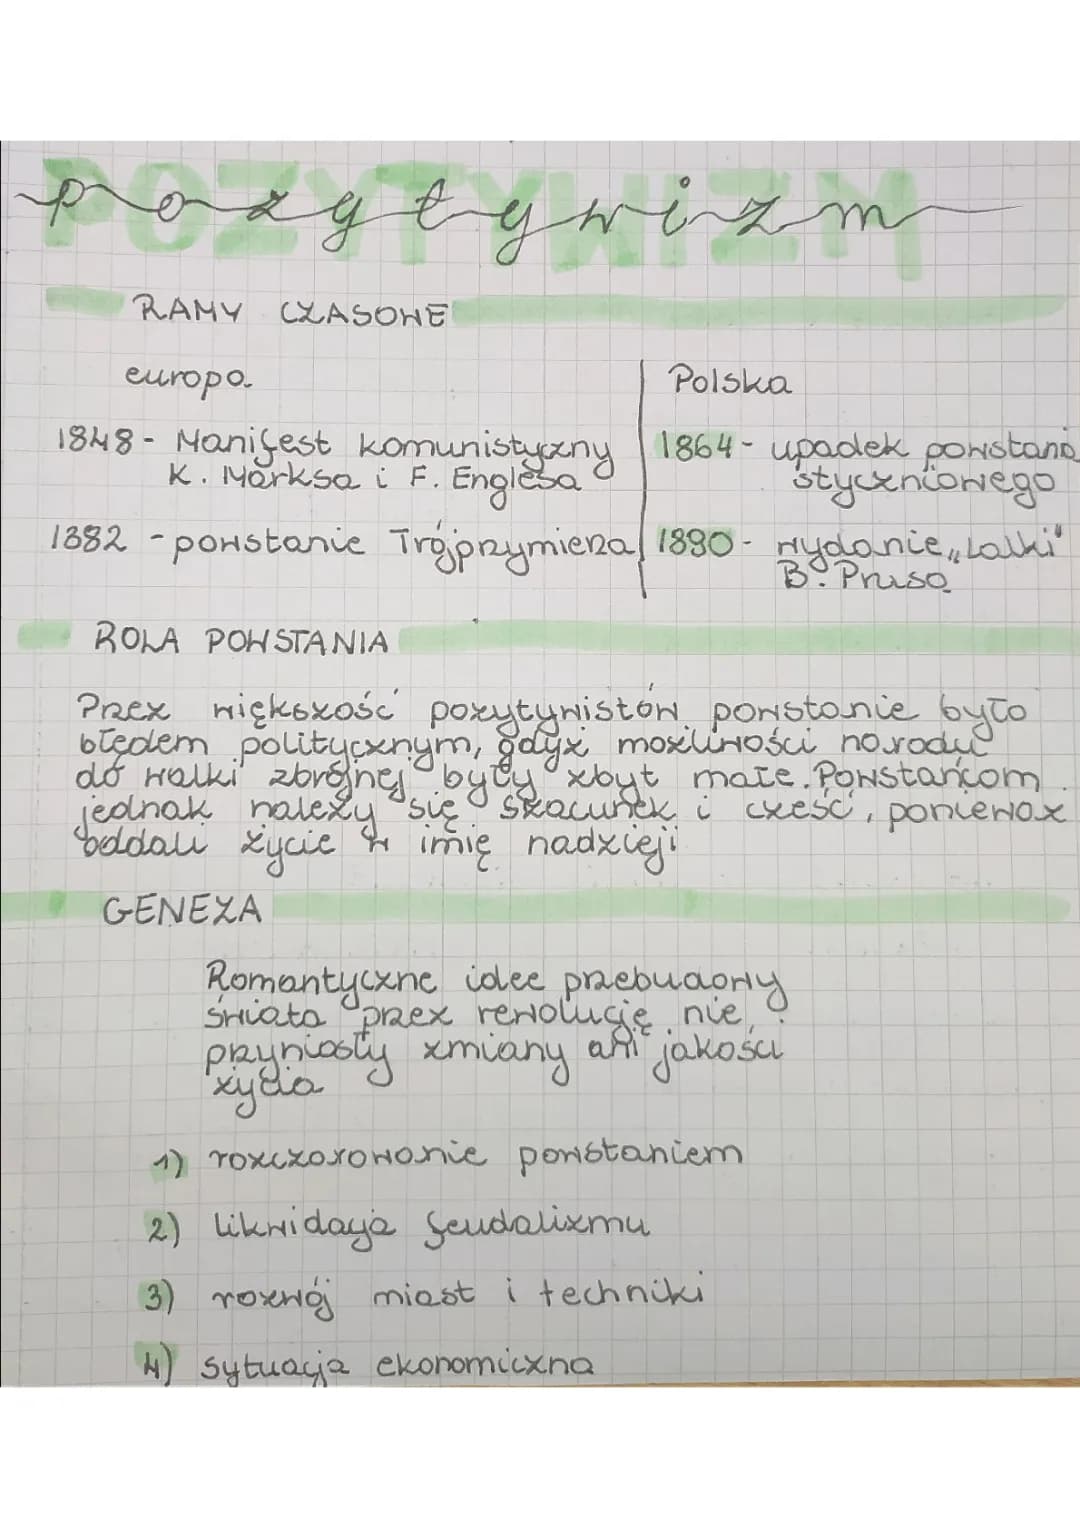 POZYTYWIZM
pozytywizm
RAMY CZASOWE
europa
1848 - Manifest komunistyczny
K. Marksa i F. Englesa
1882 - powstanie Trójprzymierza
Polska
1864 - upadek powstania
styczniowego
1890 - wydanie „Lalki"
B. Prusa
ROLA POWSTANIA
Przez większość pozytywistów powstanie było
błędem politycznym, gdyż możliwości narodu
do walki zbrojnej były zbyt małe. Powstańcom
jednak należy się szacunek i cześć, ponieważ
oddali życie w imię nadzieji
GENEZA
Romantyczne idee przebudowy
świata przez rewolucję nie
przyniosły zmiany ani jakości
życia
1) rozczarowanie powstaniem
2) likwidacja feudalizmu
3) rozwój miast i techniki
4) sytuacja ekonomiczna